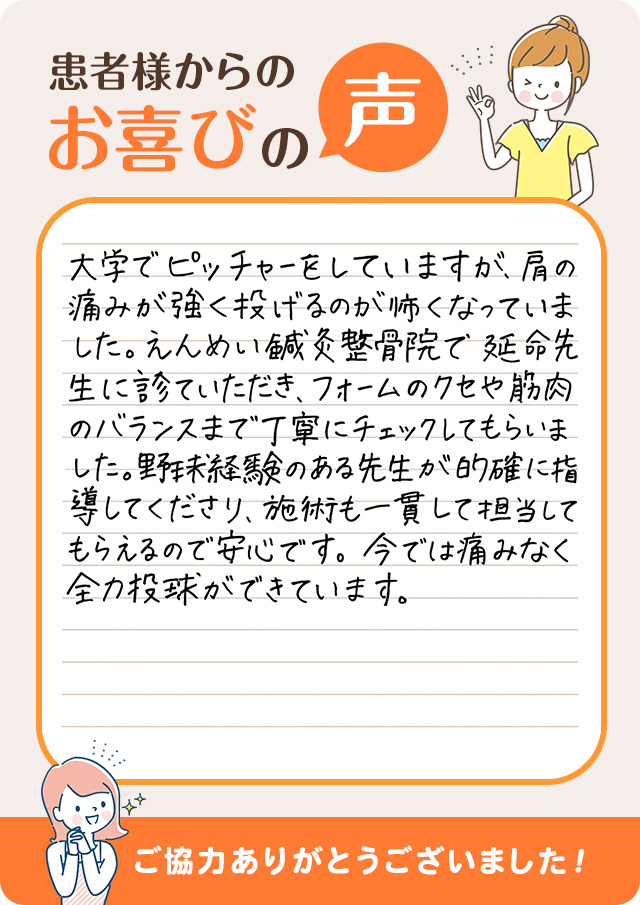 患者様からの
お喜びの声
大学でピッチャーをしていますが、肩の
痛みが強く投げるのが怖くなっていま
した。えんめい鍼灸整骨院で延命先
生に診ていただき、フォームのクセや筋肉
のバランスまで丁寧にチェックしてもらいま
した。野球経験のある先生が的確に指
導してくださり、施術も一貫して担当して
もらえるので安心です。今では痛みなく
全力投球ができています。
ご協力ありがとうございました!